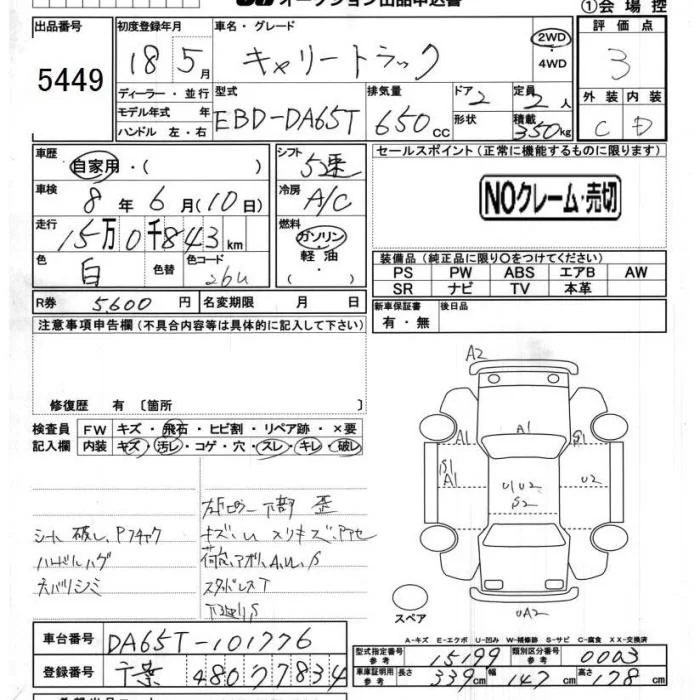 オークション出品申込書
①会場控
出品番号
5449
初度登録年月
18 5月
車名・グレード
キャリートラック
2WD
4WD
評価点
3
外装 内装
C D
ディーラー・並行
モデル年式 年
ハンドル 左・右
型式
EBD-DA65T
排気量
650cc
ドア 2
形状
定員 2人
積載 350kg
車歴
自家用・( )
シフト
5速
車検
8年6月(10日)
冷房
A/C
走行
15万0千843km
燃料
ガソリン
軽油
( )
色
白
色替
色コード
26U
R券 5,600円
名変期限 月 日
セールスポイント(正常に機能するものに限ります)
NOクレーム・売切
装備品(純正品に限り〇をつけてください)
PS PW ABS エアB AW
SR ナビ TV 本革
新車保証書
有・無
後日品
注意事項申告欄(不具合内容等は具体的に記入して下さい)
修復歴 有〔箇所 〕
検査員
記入欄
FW キズ・飛石・ヒビ割・リペア跡・×要
内装 キズ・汚レ・コゲ・穴・スレ・キレ・破レ
シート破レ、Pフチャク
ハンドルハゲ
ネバリシミ
左ピラー下部 歪
キズ・U スリキズ・アセ
荷台、アオリ、A、U、S
スタッドレスT
下廻リS
A2
A1
A1
S1
S1
A1
U1 U2
S2
U2
UA2
スペア
A-キズ E-エクボ U-凹み W-補修跡 S-サビ C-腐食 XX-交換済
車台番号
DA65T-101776
登録番号
千葉 480 ワ 7834
型式指定番号
参考
15199
類別区分番号
参考
0003
車庫証明用
参考
長さ 339cm
幅 147cm
高さ 178cm